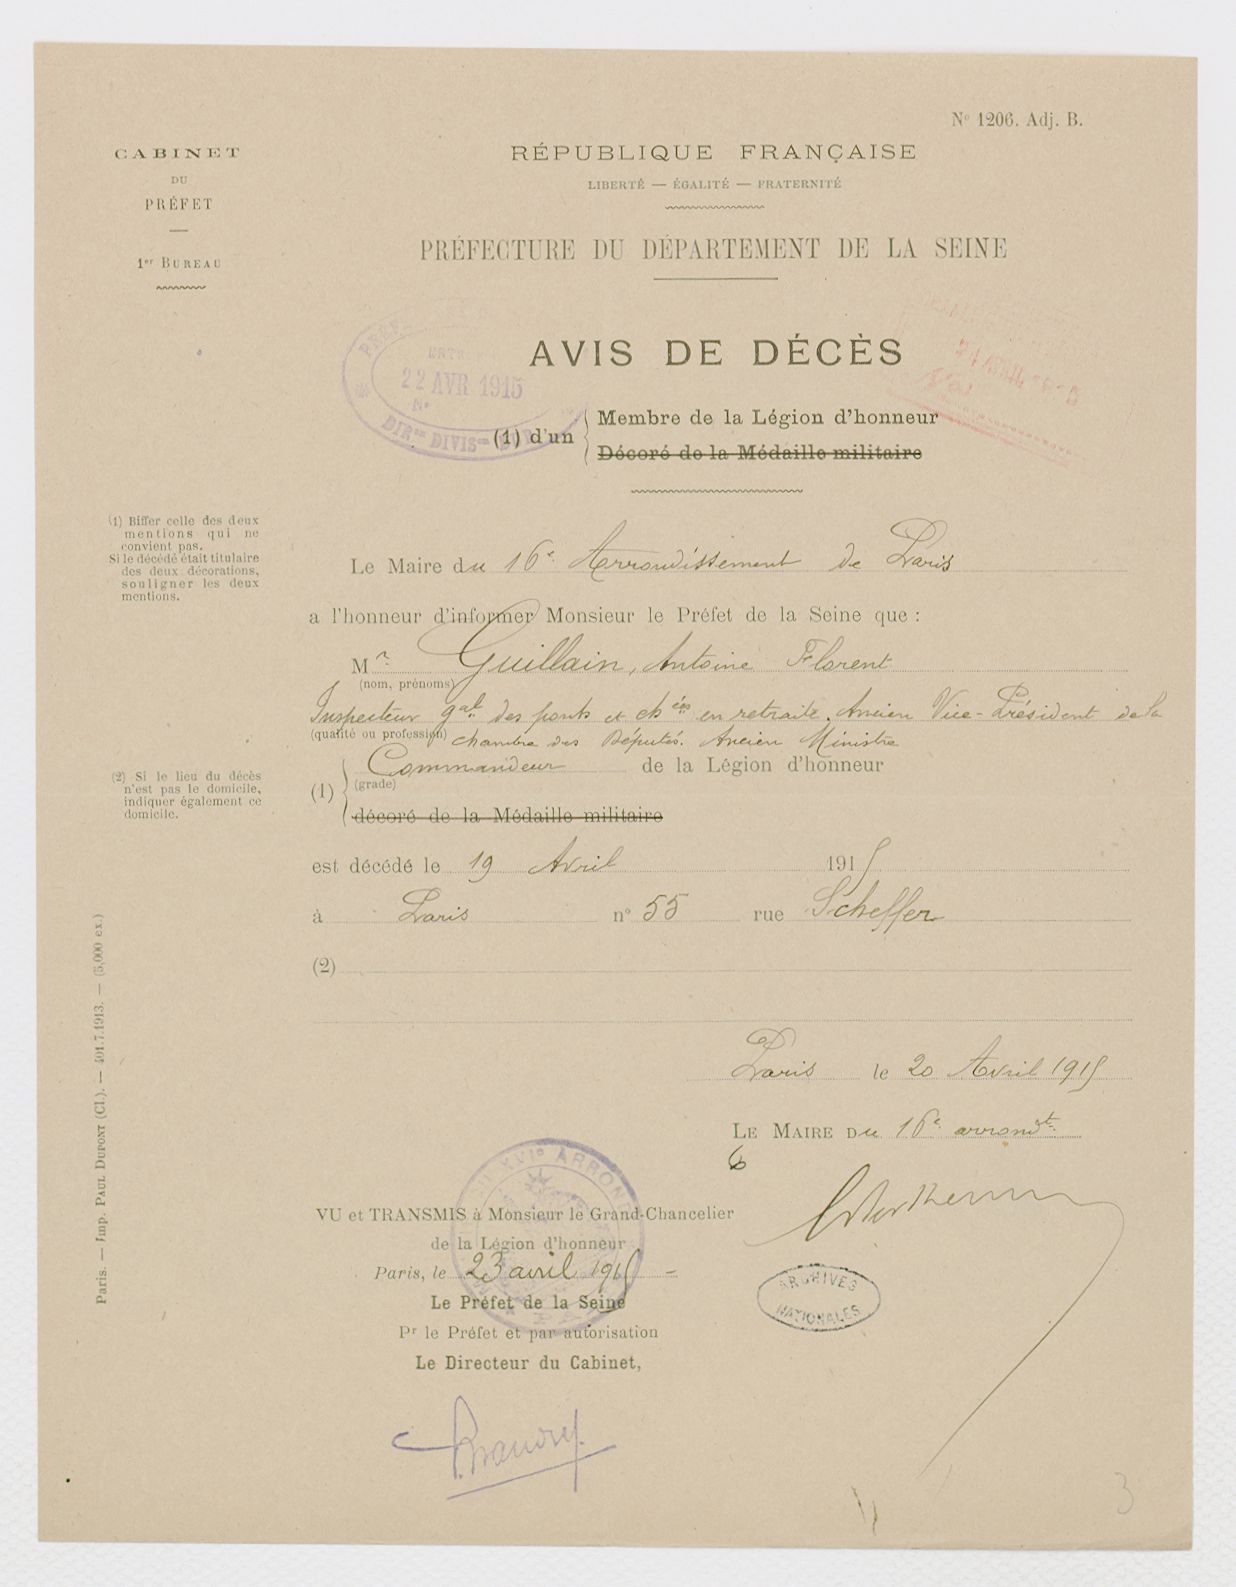 N° 1206. Adj. B.
CABINET
DU
PRÉFET
1er BUREAU
RÉPUBLIQUE FRANÇAISE
LIBERTÉ — ÉGALITÉ — FRATERNITÉ
PRÉFECTURE DU DÉPARTEMENT DE LA SEINE
AVIS DE DÉCÈS
22 AVR 1915
N°
DIRon DIVISon
(1) d'un
Membre de la Légion d'honneur
Décoré de la Médaille militaire
(1) Biffer celle des deux
mentions qui ne
convient pas.
Si le décédé était titulaire
des deux décorations,
souligner les deux
mentions.
Le Maire du 16e Arrondissement de Paris
a l'honneur d'informer Monsieur le Préfet de la Seine que :
Mr Guillain, Antoine Florent
(nom, prénoms)
Inspecteur gal des ponts et chées en retraite. Ancien Vice-Président de la
(qualité ou profession) chambre des Députés. Ancien Ministre
(1) Commandeur de la Légion d'honneur
(grade)
décoré de la Médaille militaire
(2) Si le lieu du décès
n'est pas le domicile,
indiquer également ce
domicile.
est décédé le 19 Avril 1915
à Paris n° 55 rue Scheffer
(2)
Paris le 20 Avril 1915
LE MAIRE DU 16e arrondt
VU et TRANSMIS à Monsieur le Grand-Chancelier
de la Légion d'honneur
Paris, le 23 avril 1915 -
Le Préfet de la Seine
Pr le Préfet et par autorisation
Le Directeur du Cabinet,
XVIe ARROND
ARCHIVES
NATIONALES
3
Paris. — Imp. PAUL DUPONT (Cl.). — 401.7.1913. — (5,000 ex.)